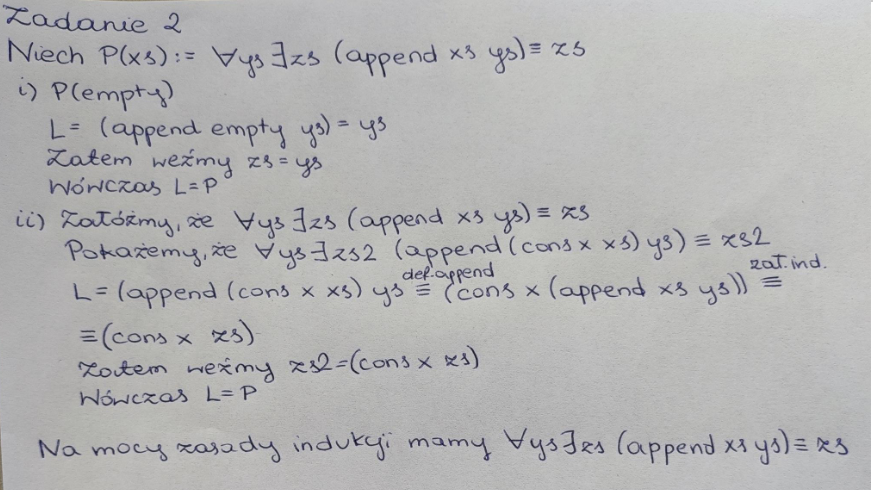 Zadanie 2
Niech P(xs) := ∀ys ∃zs (append xs ys) ≡ zs
i) P(empty)
L = (append empty ys) = ys
Zatem weźmy zs = ys
Wówczas L=P
ii) Załóżmy, że ∀ys ∃zs (append xs ys) ≡ zs
Pokażemy, że ∀ys ∃zs2 (append (cons x xs) ys) ≡ zs2
def. append zał. ind.
L = (append (cons x xs) ys ≡ (cons x (append xs ys)) ≡
≡ (cons x zs)
Zatem weźmy zs2 = (cons x zs)
Wówczas L=P
Na mocy zasady indukcji mamy ∀ys ∃zs (append xs ys) ≡ zs